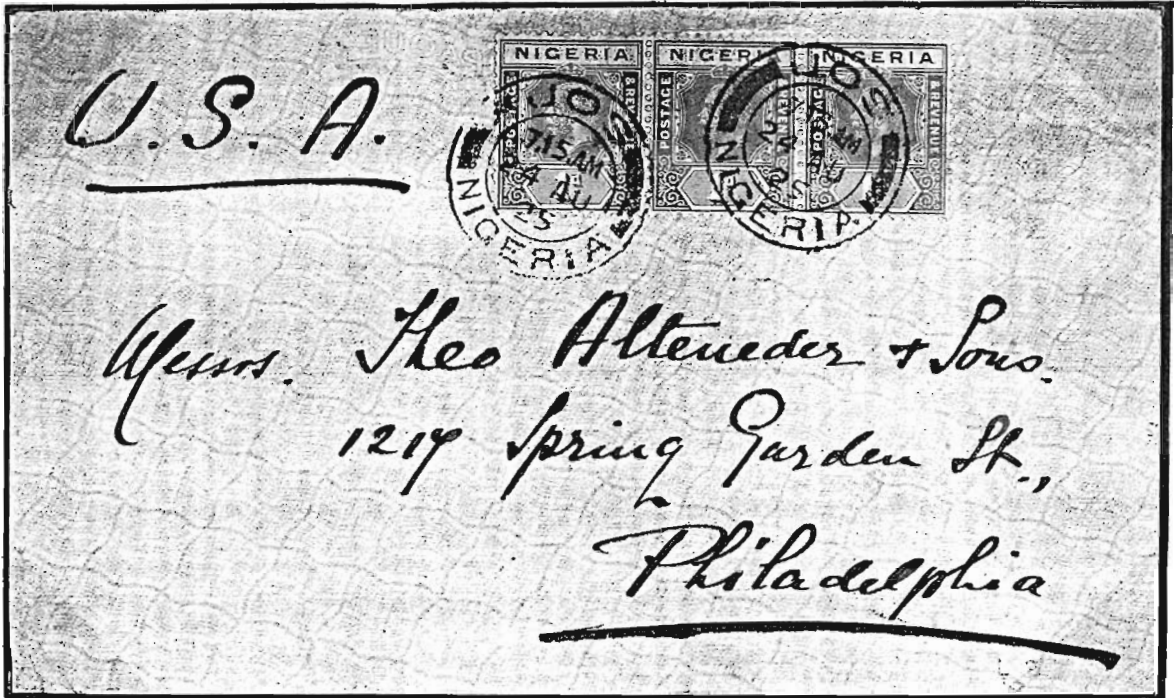 U.S.A.
NIGERIA NIGERIA NIGERIA
POSTAGE & REVENUE POSTAGE POSTAGE & REVENUE
JOS
7.15 AM
4 AU
25
NIGERIA
JOS
AM
AU
25
NIGERIA
Messrs. Theo Alteneder & Sons.
1217 Spring Garden St.,
Philadelphia